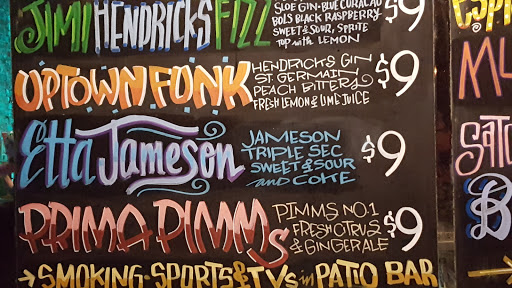 JIMI HENDRICKS FIZZ
SLOE GIN-BLUE CURACAO
BOLS BLACK RASPBERRY
SWEET & SOUR, SPRITE
TOP with LEMON
$9
UPTOWN FUNK
HENDRICKS GIN
ST. GERMAIN
PEACH BITTERS
FRESH LEMON & LIME JUICE
$9
Etta Jameson
JAMESON
TRIPLE SEC
SWEET & SOUR
and COKE
$9
PRIMA PIMMs
PIMMS NO.1
FRESH CITRUS
& GINGERALE
$9
→ SMOKING-SPORTS & TVs in PATIO BAR